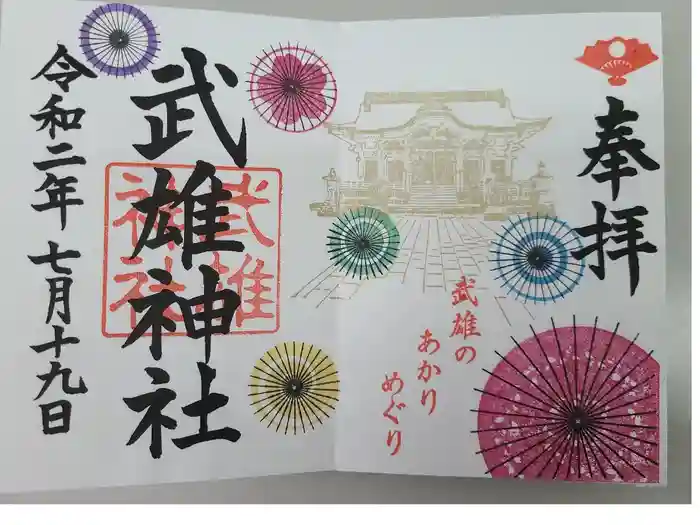 奉拝
武雄の
あかり
めぐり
武雄神社
武雄
神社
令和二年 七月十九日